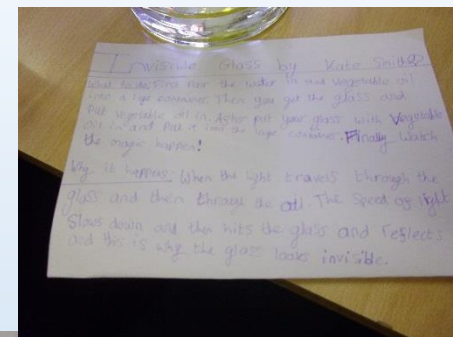 Invisible Glass by Kate Smith
What to do: the water in and vegetable oil
into a large container. Then you get the glass and
Put vegetable oil in. After put your glass with Vegetable
oil in and Put it into the large container. Finally Watch
the magic happen!
Why it happens: When the light travels through the
glass and then through the oil. The Speed og light
Slows down and then hits the glass and reflects
and this is why the glass looks invisible.